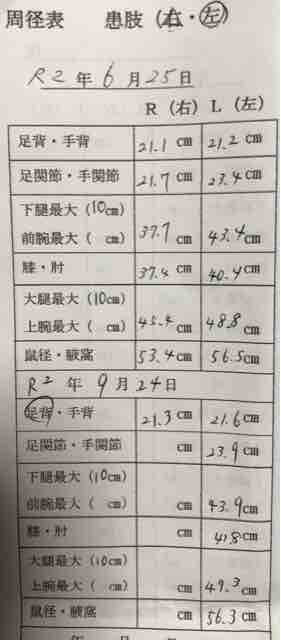 周径表 患肢 (右・左)
R2年6月25日
R (右) L (左)
足背・手背 21.1 cm 21.2 cm
足関節・手関節 21.7 cm 23.4 cm
下腿最大 (10cm)
前腕最大 ( cm) 37.7 cm 43.4 cm
膝・肘 37.4 cm 40.4 cm
大腿最大 (10cm)
上腕最大 ( cm) 45.4 cm 48.8 cm
鼠径・腋窩 53.4 cm 56.5 cm
R2年9月24日
足背・手背 21.3 cm 21.6 cm
足関節・手関節 cm 23.9 cm
下腿最大 (10cm)
前腕最大 ( cm) cm 43.9 cm
膝・肘 cm 41.8 cm
大腿最大 (10cm)
上腕最大 ( cm) cm 49.3 cm
鼠径・腋窩 cm 56.3 cm
年 月 日